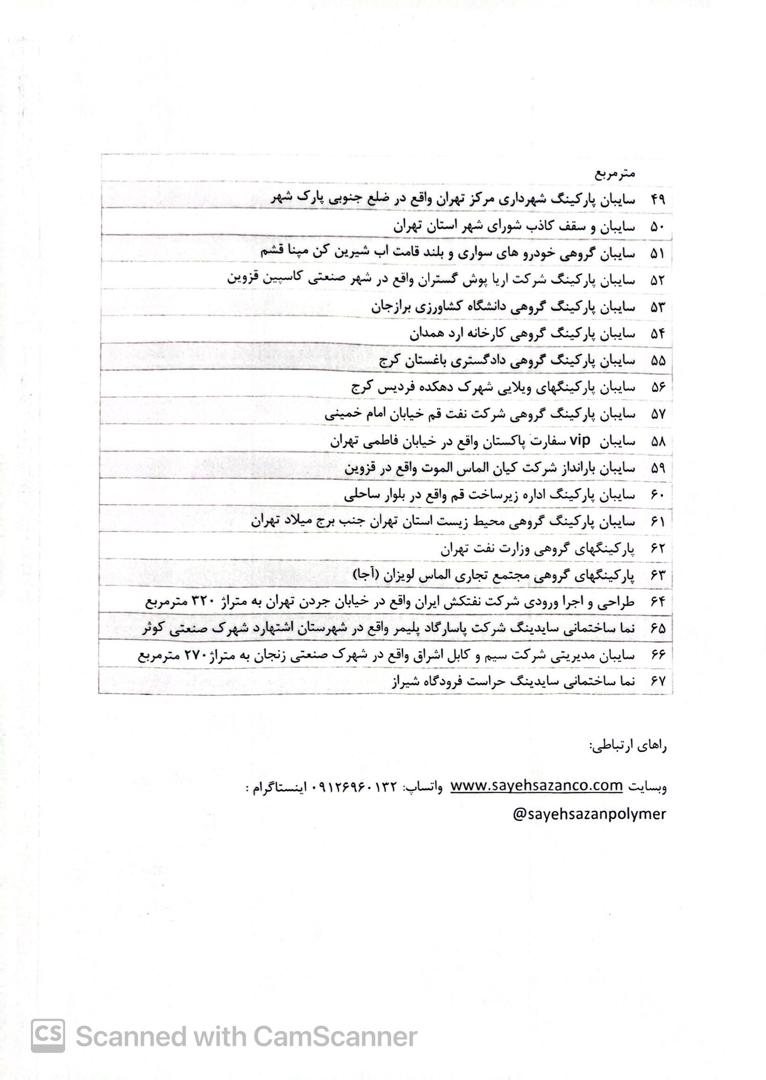 مترمربع
۴۹ سایبان پارکینگ شهرداری مرکز تهران واقع در ضلع جنوبی پارک شهر
۵۰ سایبان و سقف کاذب شورای شهر استان تهران
۵۱ سایبان گروهی خودرو های سواری و بلند قامت اب شیرین کن مپنا قشم
۵۲ سایبان پارکینگ شرکت اریا پوش گستران واقع در شهر صنعتی کاسپین قزوین
۵۳ سایبان پارکینگ گروهی دانشگاه کشاورزی برازجان
۵۴ سایبان پارکینگ گروهی کارخانه ارد همدان
۵۵ سایبان پارکینگ گروهی دادگستری باغستان کرج
۵۶ سایبان پارکینگهای ویلایی شهرک دهکده فردیس کرج
۵۷ سایبان پارکینگ گروهی شرکت نفت قم خیابان امام خمینی
۵۸ سایبان vip سفارت پاکستان واقع در خیابان فاطمی تهران
۵۹ سایبان بارانداز شرکت کیان الماس الموت واقع در قزوین
۶۰ سایبان پارکینگ اداره زیرساخت قم واقع در بلوار ساحلی
۶۱ سایبان پارکینگ گروهی محیط زیست استان تهران جنب برج میلاد تهران
۶۲ پارکینگهای گروهی وزارت نفت تهران
۶۳ پارکینگهای گروهی مجتمع تجاری الماس لویزان (آجا)
۶۴ طراحی و اجرا ورودی شرکت نفتکش ایران واقع در خیابان جردن تهران به متراژ ۳۲۰ مترمربع
۶۵ نما ساختمانی سایدینگ شرکت پاسارگاد پلیمر واقع در شهرستان اشتهارد شهرک صنعتی کوثر
۶۶ سایبان مدیریتی شرکت سیم و کابل اشراق واقع در شهرک صنعتی زنجان به متراژ۲۷۰ مترمربع
۶۷ نما ساختمانی سایدینگ حراست فرودگاه شیراز
راهای ارتباطی:
وبسایت www.sayehsazanco.com واتساپ: ۰۹۱۲۶۹۶۰۱۳۲ اینستاگرام :
@sayehsazanpolymer
CS Scanned with CamScanner